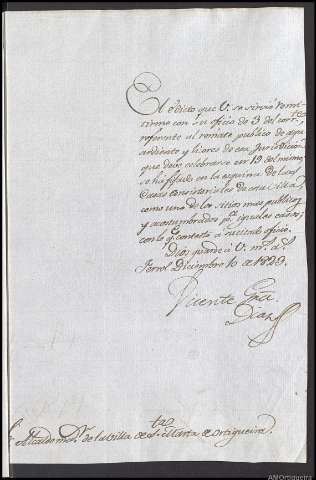 El edicto que V. se sirvió remi-
tirme con su oficio de 3 del corr.te
referente al remate publico de agu-
ardiente y licores de esa Jurisdiccion
que deve celebrarse en 19 del mismo,
se ha fijado en la esquina de las
Casas Consistoriales de esta Villa,
como uno de los sitios mas publicos
y acostumbrados p.a iguales casos;
con lo q.e contesto a su citado oficio.
Dios guarde á V. m.s a.s
Ferrol Diciembre 10 de 1829.
Vicente
Diaz
Alcalde m.or de la Villa de S.ta Marta de Ortigueira.
AMOrtigueira